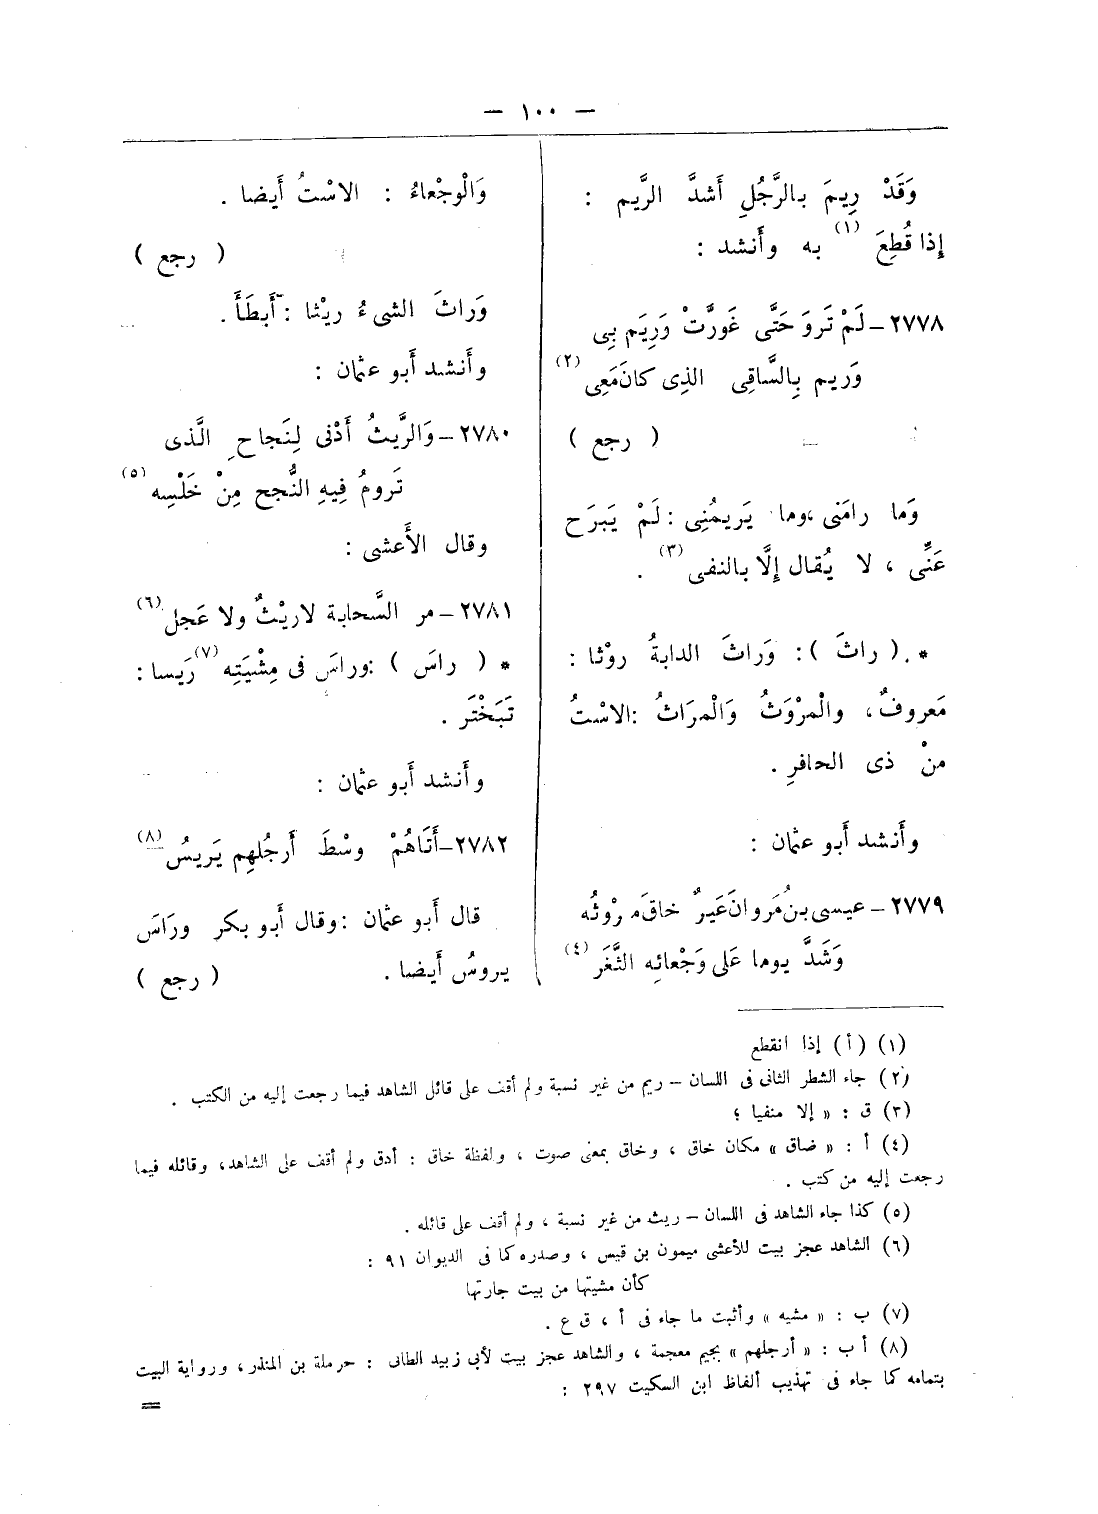 — ١٠٠ —
وَقَدْ رِيمَ بالرَّجُلِ أَشدَّ الرَّيم :
إذا قُطِعَ (١) به وأنشد :
٢٧٧٨ – لَمْ تَروَ حَتَّى غَورَّتْ وَرِيَم بِى
وَريم بِالسَّاقِى الذِى كانَ مَعِى (٢)
( رجع )
وَما رامَنى ، وما يَريمُنِى : لَمْ يَبرَح
عَنِّى ، لا يُقال إلَّا بالنفى (٣) .
* ( راثَ ) : وَراثَ الدابةُ روْثا :
مَعروفٌ ، والْمرْوَثُ وَالْمرَاثُ : الاسْتُ
منْ ذى الحافرِ .
وأنشد أبو عثمان :
٢٧٧٩ – عيسى بن مُروانَ عَيرٌ خاقَ روْثُه
وَشَدَّ يوما عَلى وَجْعائِه الثَّغَر (٤)
وَالْوجْعاءُ : الاسْتُ أَيضا .
( رجع )
وَراثَ الشىءُ ريْثا : أَبطَأَ .
وأَنشد أَبو عثمان :
٢٧٨٠ – وَالرَّيثُ أَدْنى لِنَجاحِ الَّذى
تَرومُ فِيهِ النُّجح مِنْ خَلْسِه (٥)
وقال الأَعشى :
٢٧٨١ – مر السَّحابة لاريْثٌ ولا عَجل (٦)
* ( راسَ ) : وراسَ فى مِشْيَتِه (٧) رَيسا :
تَبَخْتَر .
وأَنشد أبو عثمان :
٢٧٨٢ – أَتَاهُمْ وسْطَ أَرجُلهِم يَريسُ (٨)
قال أبو عثمان : وقال أبو بكر ورَاسَ
يروسُ أَيضا . ( رجع )
(١) (أ) إذا انقطع
(٢) جاء الشطر الثانى فى اللسان – ريم من غير نسبة ولم أقف على قائل الشاهد فيما رجعت إليه من الكتب .
(٣) ق : « إلا منفيا ؛
(٤) أ : « ضاق » مكان خاق ، وخاق بمعنى صوت ، ولفظة خاق : أدق ولم أقف على الشاهد ، وقائله فيما
رجعت إليه من كتب .
(٥) كذا جاء الشاهد فى اللسان – ريث من غير نسبة ، ولم أقف على قائله .
(٦) الشاهد عجز بيت للأعشى ميمون بن قيس ، وصدره كما فى الديوان ٩١ :
كأن مشيتها من بيت جارتها
(٧) ب : « مشيه » وأثبت ما جاء فى أ ، ق ع .
(٨) أ ب : « أرجلهم » بجيم معجمة ، والشاهد عجز بيت لأبى زبيد الطائى : حرملة بن المنذر ، ورواية البيت
بتمامه كما جاء فى تهذيب ألفاظ ابن السكيت ٢٩٧ :
=